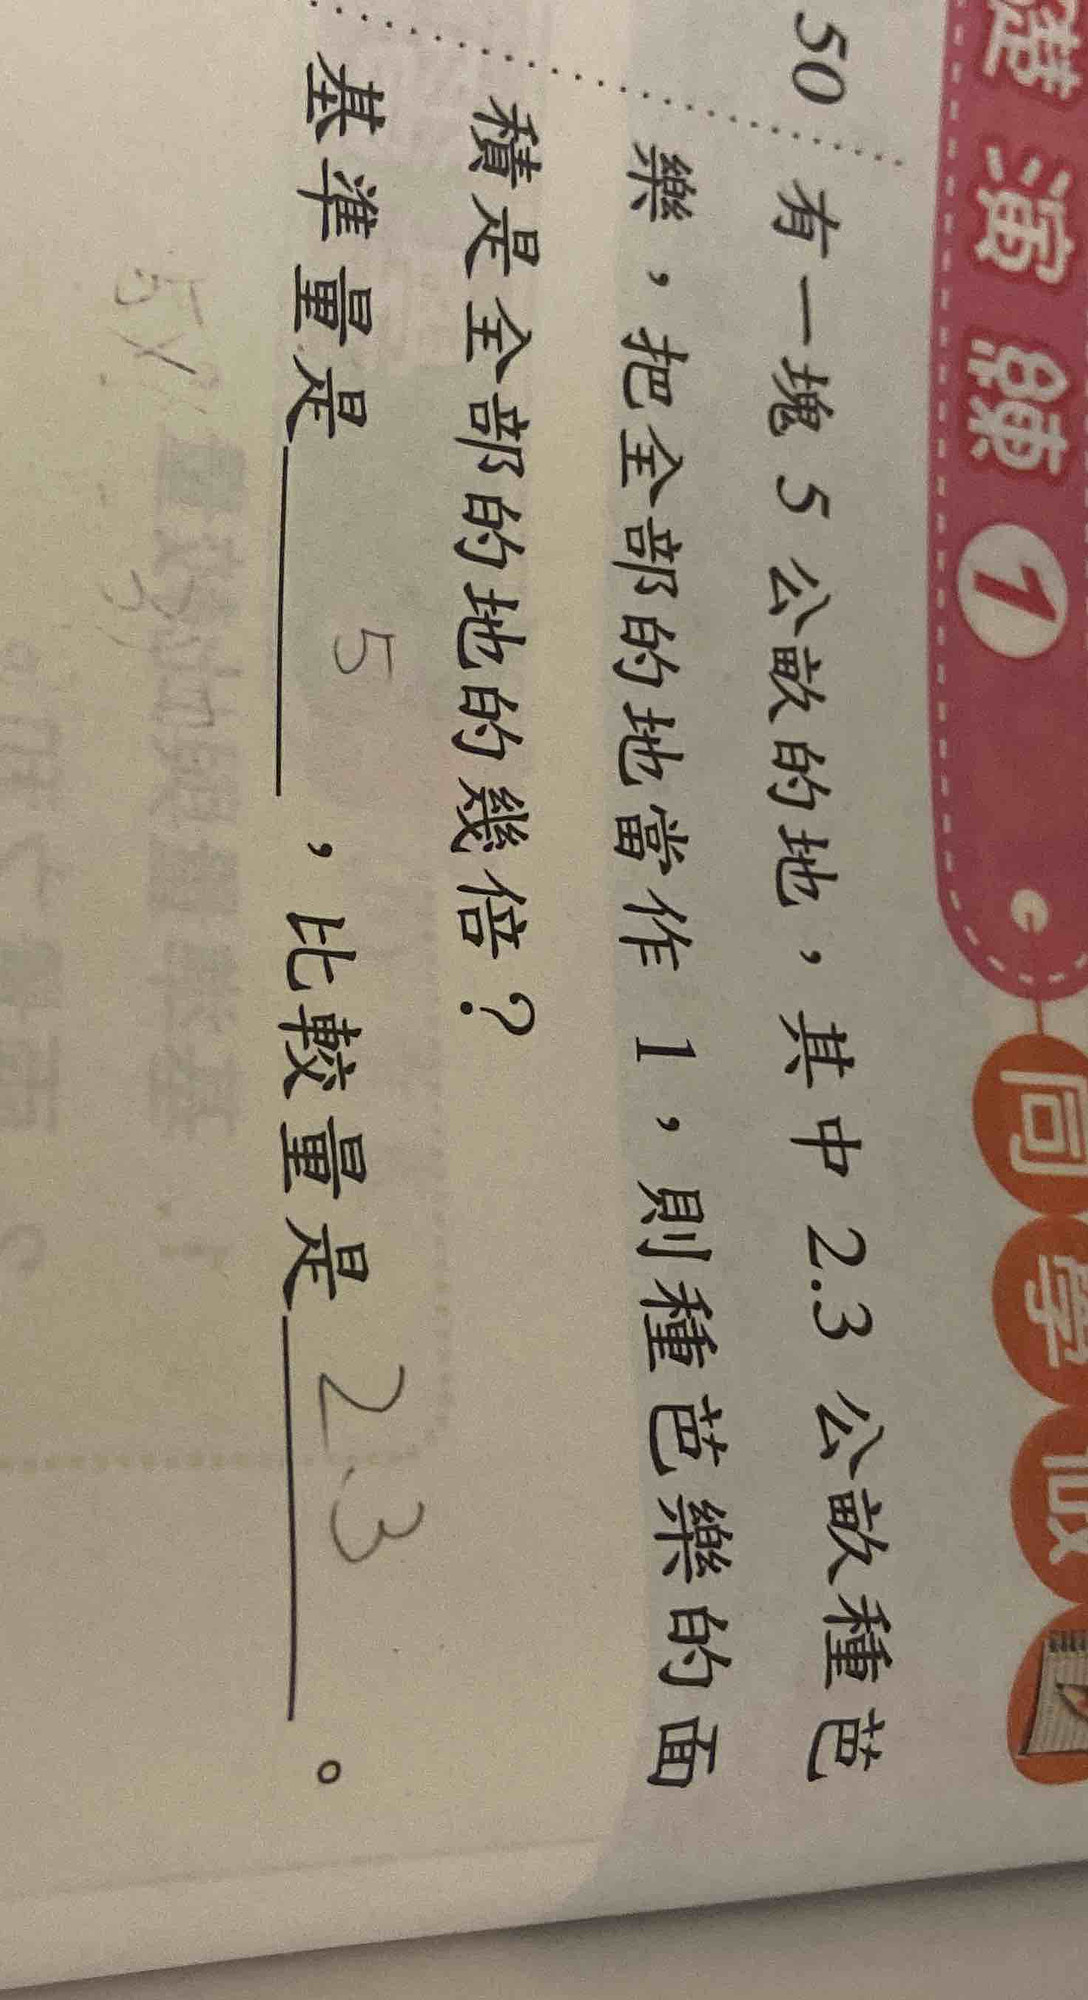 演練 1 同學
50 有一塊 5 公畝的地，其中 2.3 公畝種芭
樂，把全部的地當作 1，則種芭樂的面
積是全部的地的幾倍？
基準量是 5 ，比較量是 2.3 。